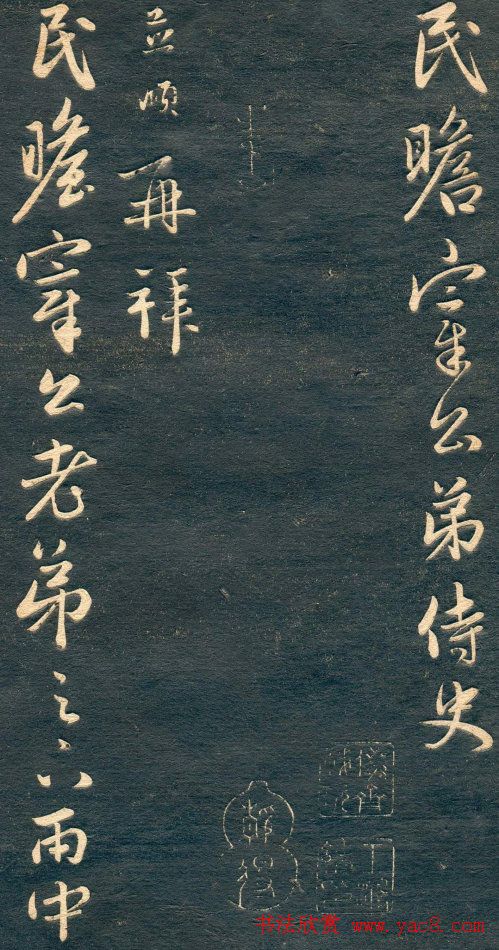 民瞻宰公弟侍史
孟頫再拜
民瞻宰公老弟足下雨中
书法欣赏 www.yac8.com